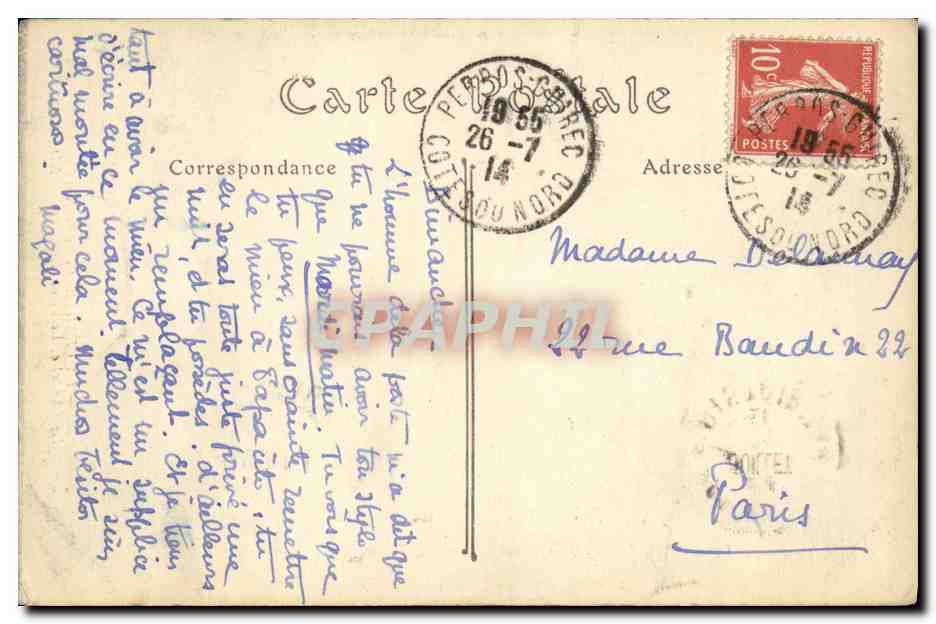 Carte Postale
Correspondance
Adresse
RÉPUBLIQUE FRANÇAISE
10c
POSTES
PERROS-GUIREC
19 55
26 -7
14
COTES DU NORD
PERROS-GUIREC
19 55
26 -7
14
COTES DU NORD
Madame Delaunay
22 rue Baudin 22
Paris
Dimanche
L'homme de la poste m'a dit que
tu ne pourrais avoir ton stylo
que Mardi matin. Tu vois que
tu peux, sans crainte remettre
le mien à Papa
tu
en seras toute juste privé une
nuit, et tu possèdes d'ailleurs
un remplaçant. Et je tiens
tant à avoir le mien. Ce m'est un supplice
d'écrire en ce moment, tellement je suis
mal montée pour cela. Muchos
cariñosos. Magali
CPAPHIL